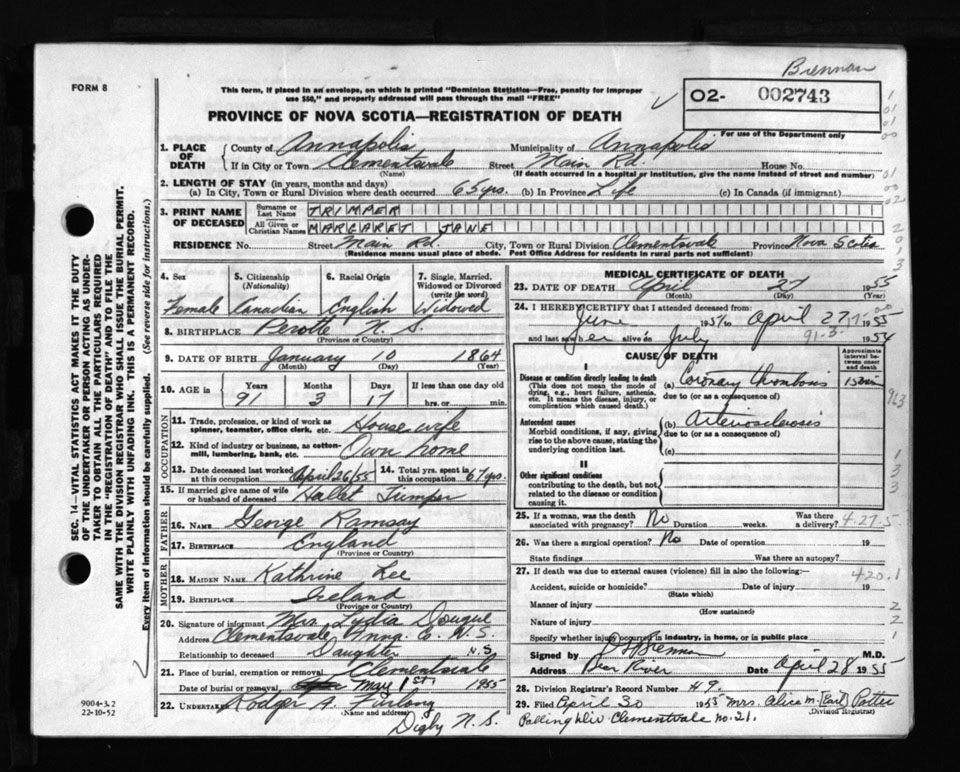 Brennan
FORM 8
This form, if placed in an envelope, on which is printed "Dominion Statistics—Free, penalty for improper
use $50," and properly addressed will pass through the mail "FREE"
02- 002743
PROVINCE OF NOVA SCOTIA—REGISTRATION OF DEATH
For use of the Department only
1. PLACE OF DEATH
County of Annapolis Municipality of Annapolis
If in City or Town Clementsvale Street Main Rd. House No.
(Name) (If death occurred in a hospital or institution, give the name instead of street and number)
2. LENGTH OF STAY (in years, months and days)
(a) In City, Town or Rural Division where death occurred 65 yrs. (b) In Province Life (c) In Canada (if immigrant)
3. PRINT NAME OF DECEASED
Surname or Last Name TRIMPER
All Given or Christian Names MARGARET JANE
RESIDENCE No. Street Main Rd. City, Town or Rural Division Clementsvale Province Nova Scotia
(Residence means usual place of abode. Post Office Address for residents in rural parts not sufficient)
4. Sex Female
5. Citizenship (Nationality) Canadian
6. Racial Origin English
7. Single, Married, Widowed or Divorced (write the word) Widowed
8. BIRTHPLACE Perotte N. S.
(Province or Country)
9. DATE OF BIRTH January 10 1864
(Month) (Day) (Year)
10. AGE in Years 91 Months 3 Days 17 If less than one day old hrs. or min.
OCCUPATION
11. Trade, profession, or kind of work as spinner, teamster, office clerk, etc. House wife
12. Kind of industry or business, as cotton-mill, lumbering, bank, etc. Own home
13. Date deceased last worked at this occupation April 26/55 14. Total yrs. spent in this occupation 67 yrs.
15. If married give name of wife or husband of deceased Hallet Trimper
FATHER
16. NAME George Ramsay
17. BIRTHPLACE England
(Province or Country)
MOTHER
18. MAIDEN NAME Kathrine Lee
19. BIRTHPLACE Ireland
(Province or Country)
20. Signature of informant Mrs. Lydia
Address Clementsvale, Anna. C. N. S.
Relationship to deceased Daughter N.S
21. Place of burial, cremation or removal Clementsvale
Date of burial or removal May 1st 1955
22. UNDERTAKER Rodger A. Furlong
(Name and address) Digby N. S.
9004-3.2
22-10-52
MEDICAL CERTIFICATE OF DEATH
23. DATE OF DEATH April 27 1955
(Month) (Day) (Year)
24. I HEREBY CERTIFY that I attended deceased from:
June 1951 to April 27 1955
and last saw her alive on July 1954
91-3.
CAUSE OF DEATH
Approximate interval between onset and death
I
Disease or condition directly leading to death
(This does not mean the mode of dying, e.g., heart failure, asthenia, etc. It means the disease, injury, or complication which caused death.)
(a) Coronary thrombosis
due to (or as a consequence of)
Antecedent causes
Morbid conditions, if any, giving rise to the above cause, stating the underlying condition last.
(b) Arteriosclerosis
due to (or as a consequence of)
(c)
II
Other significant conditions
contributing to the death, but not related to the disease or condition causing it.
25. If a woman, was the death associated with pregnancy? No Duration weeks. Was there a delivery?
26. Was there a surgical operation? No Date of operation 19
State findings Was there an autopsy?
27. If death was due to external causes (violence) fill in also the following:—
420.1
Accident, suicide or homicide? Date 19
(State which)
Manner of injury
(How sustained)
Nature of injury
Specify whether injury occurred in industry, in home, or in public place
Signed by Brennan M.D.
Address Bear River Date April 28 1955
28. Division Registrar's Record Number #9.
29. Filed April 30 1955 Mrs. Alice M. (Earl) Potter
(Division Registrar)
Clementsvale No. 21.
SEC. 14—VITAL STATISTICS ACT MAKES IT THE DUTY
OF THE UNDERTAKER OR PERSON ACTING AS UNDER-
TAKER TO OBTAIN ALL THE PARTICULARS REQUIRED
IN THE "REGISTRATION OF DEATH" AND TO FILE THE
SAME WITH THE DIVISION REGISTRAR WHO SHALL ISSUE THE BURIAL PERMIT.
WRITE PLAINLY WITH UNFADING INK. THIS IS A PERMANENT RECORD.
Every item of information should be carefully supplied. (See reverse side for instructions.)